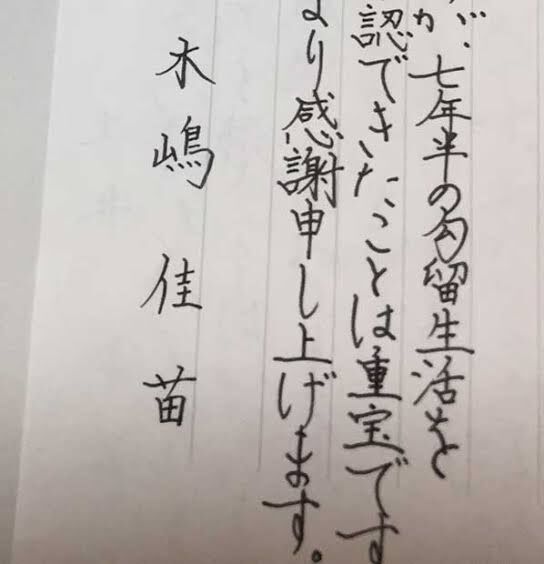 が、七年半の勾留生活を
認できたことは重宝です
より感謝申し上げます。
木嶋佳苗